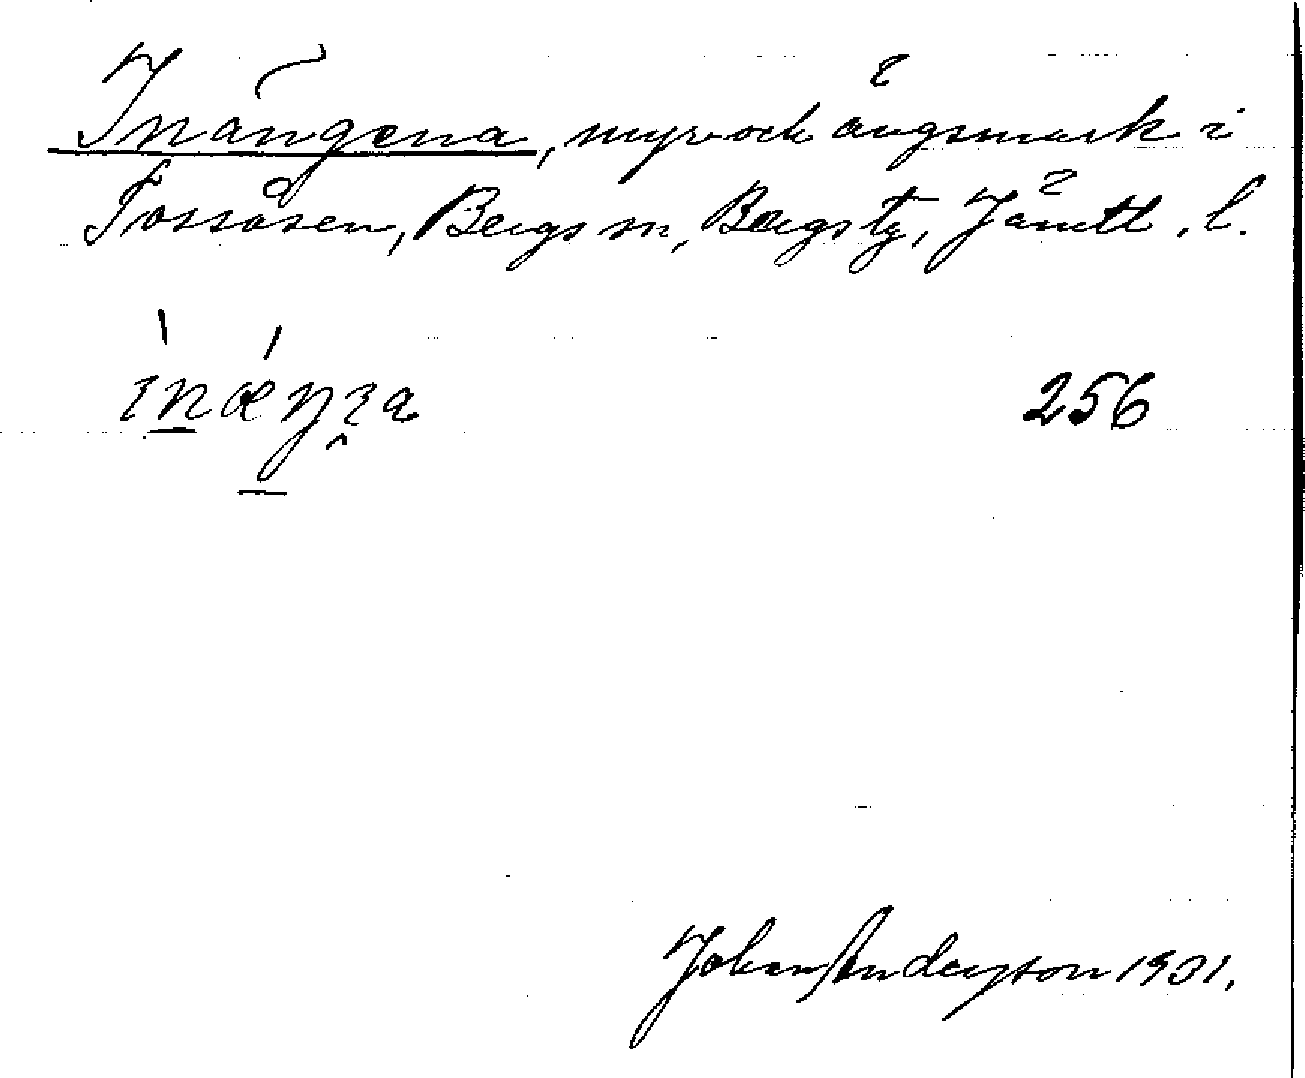 Inängena, myr- och ängsmark i
Fossåsen, Bergs sn, Bergs tg, Jämtl. l.
256
Johan Anderson 1901.